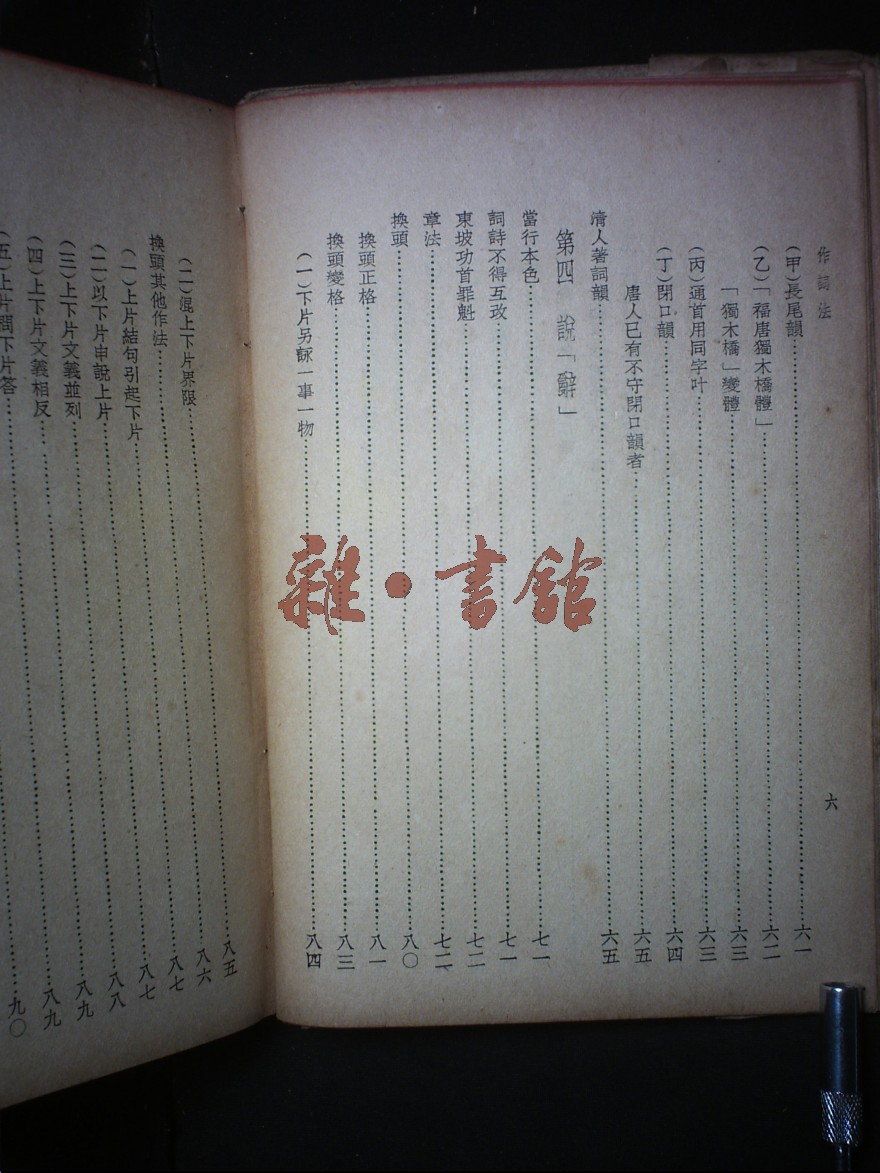 作詞法
六
(甲)長尾韻……六一
(乙)「福唐獨木橋體」……六二
「獨木橋」變體……六三
(丙)通首用同字叶……六三
(丁)閉口韻……六四
唐人已有不守閉口韻者……六五
清人著詞韻……六五
第四　說「辭」
當行本色……七一
詞詩不得互改……七一
東坡功首罪魁……七二
章法……七二
換頭……八〇
換頭正格……八一
換頭變格……八三
(一)下片另詠一事一物……八四
(二)混上下片界限……八五
換頭其他作法……八六
(一)上片結句引起下片……八七
(二)以下片申說上片……八七
(三)上下片文義並列……八八
(四)上下片文義相反……八九
(五)上片問下片答……八九
九〇
雜·書館